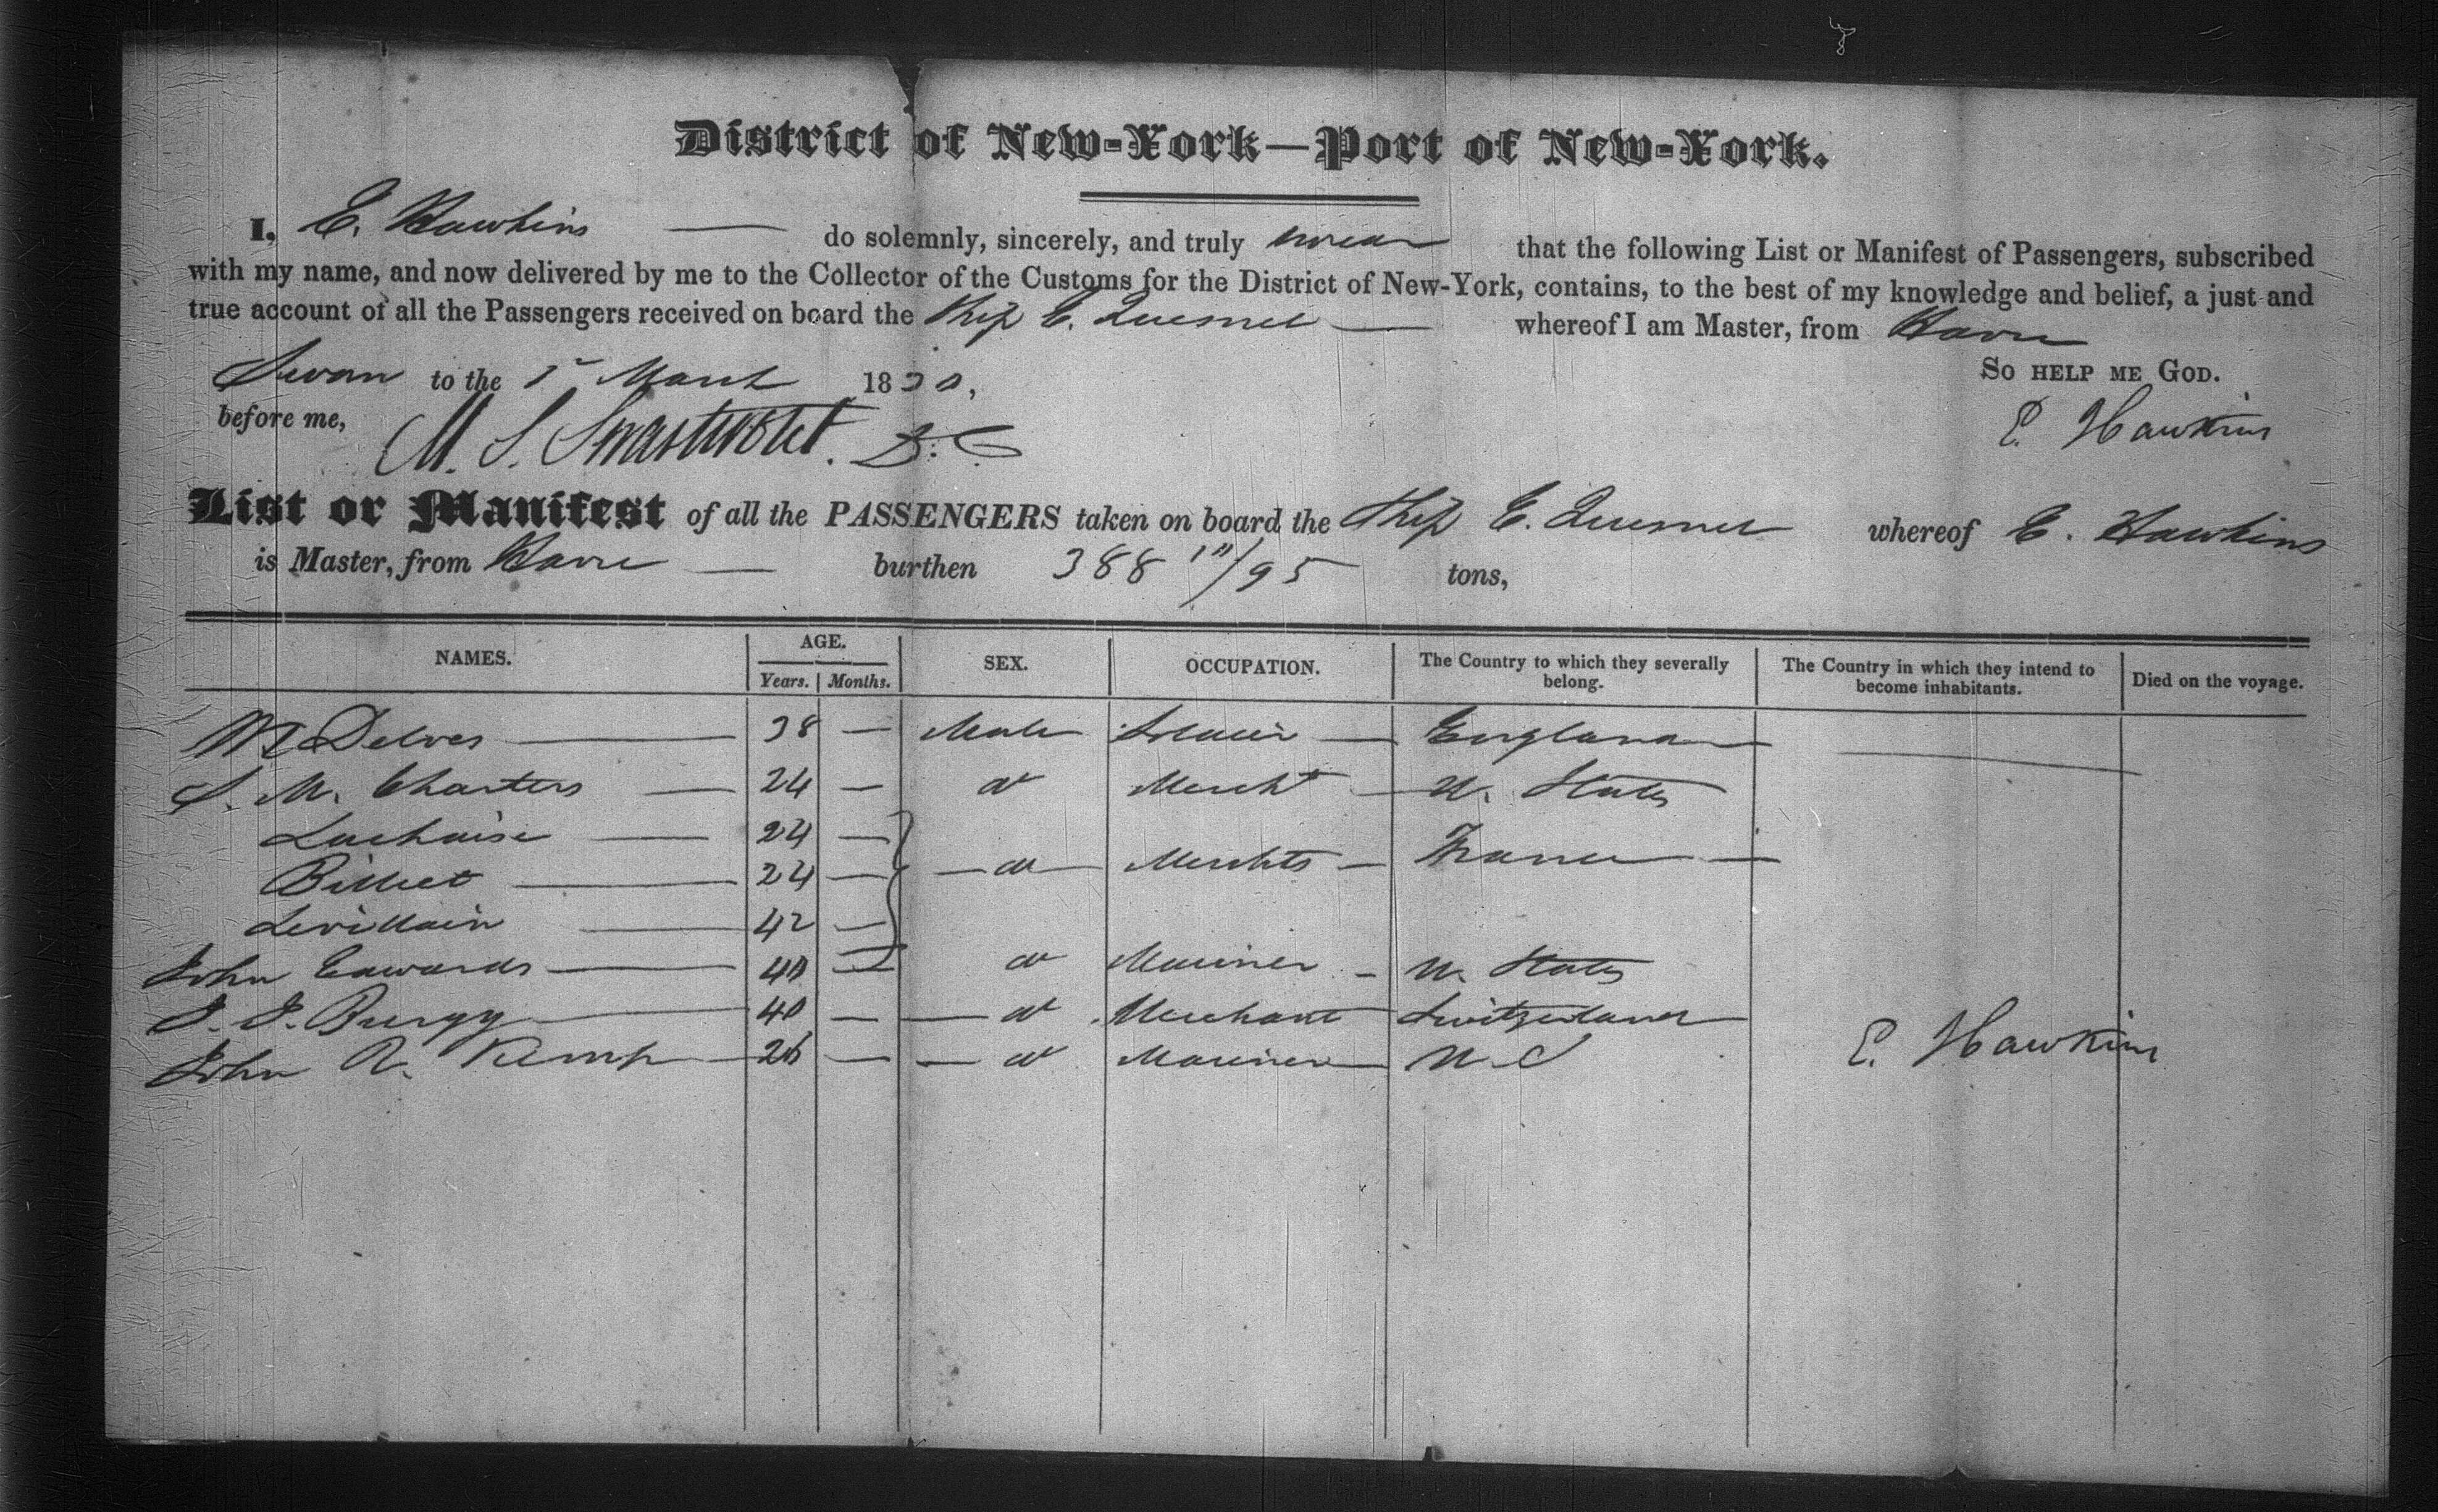 District of New-York—Port of New-York.
I, E. Hawkins — do solemnly, sincerely, and truly swear that the following List or Manifest of Passengers, subscribed
with my name, and now delivered by me to the Collector of the Customs for the District of New-York, contains, to the best of my knowledge and belief, a just and
true account of all the Passengers received on board the Ship E. Quesnel — whereof I am Master, from Havre
So help me God.
Sworn to the 1st March 1830,
before me, M. S. Swartwout. D. C.
E. Hawkins
List or Manifest of all the PASSENGERS taken on board the Ship E. Quesnel whereof E. Hawkins
is Master, from Havre — burthen 388 /95 tons,
NAMES. AGE. Years. Months. SEX. OCCUPATION. The Country to which they severally belong. The Country in which they intend to become inhabitants. Died on the voyage.
Delves — 38 — Male — England —
S. M. Charters — 24 — do Mercht — U. States
Lachaise — 24 —
Billiet — 24 — do — Merchts — France —
Levillain — 42 —
John Edwards — 40 — do Mariner - U. States
J. J. Burgy — 40 — do Merchant Switzerland
John A. Kemp — 26 — do Mariner — U. S
E. Hawkins